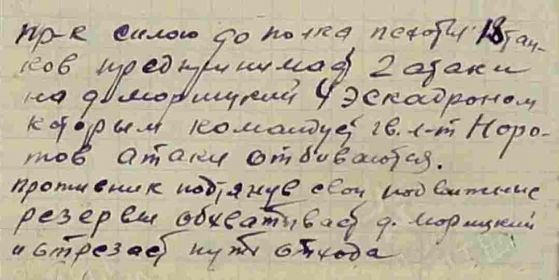 пр-к силою до полка пехоты 18 тан-
ков предпринимает 2 атаки
на д. Морицкий 4 эскадроном
которым командует гв. л-т Норо-
тов атаки отбиваются.
противник подтянув свои подвижные
резервы обхватывает д. Морицкий
и отрезает пути отхода